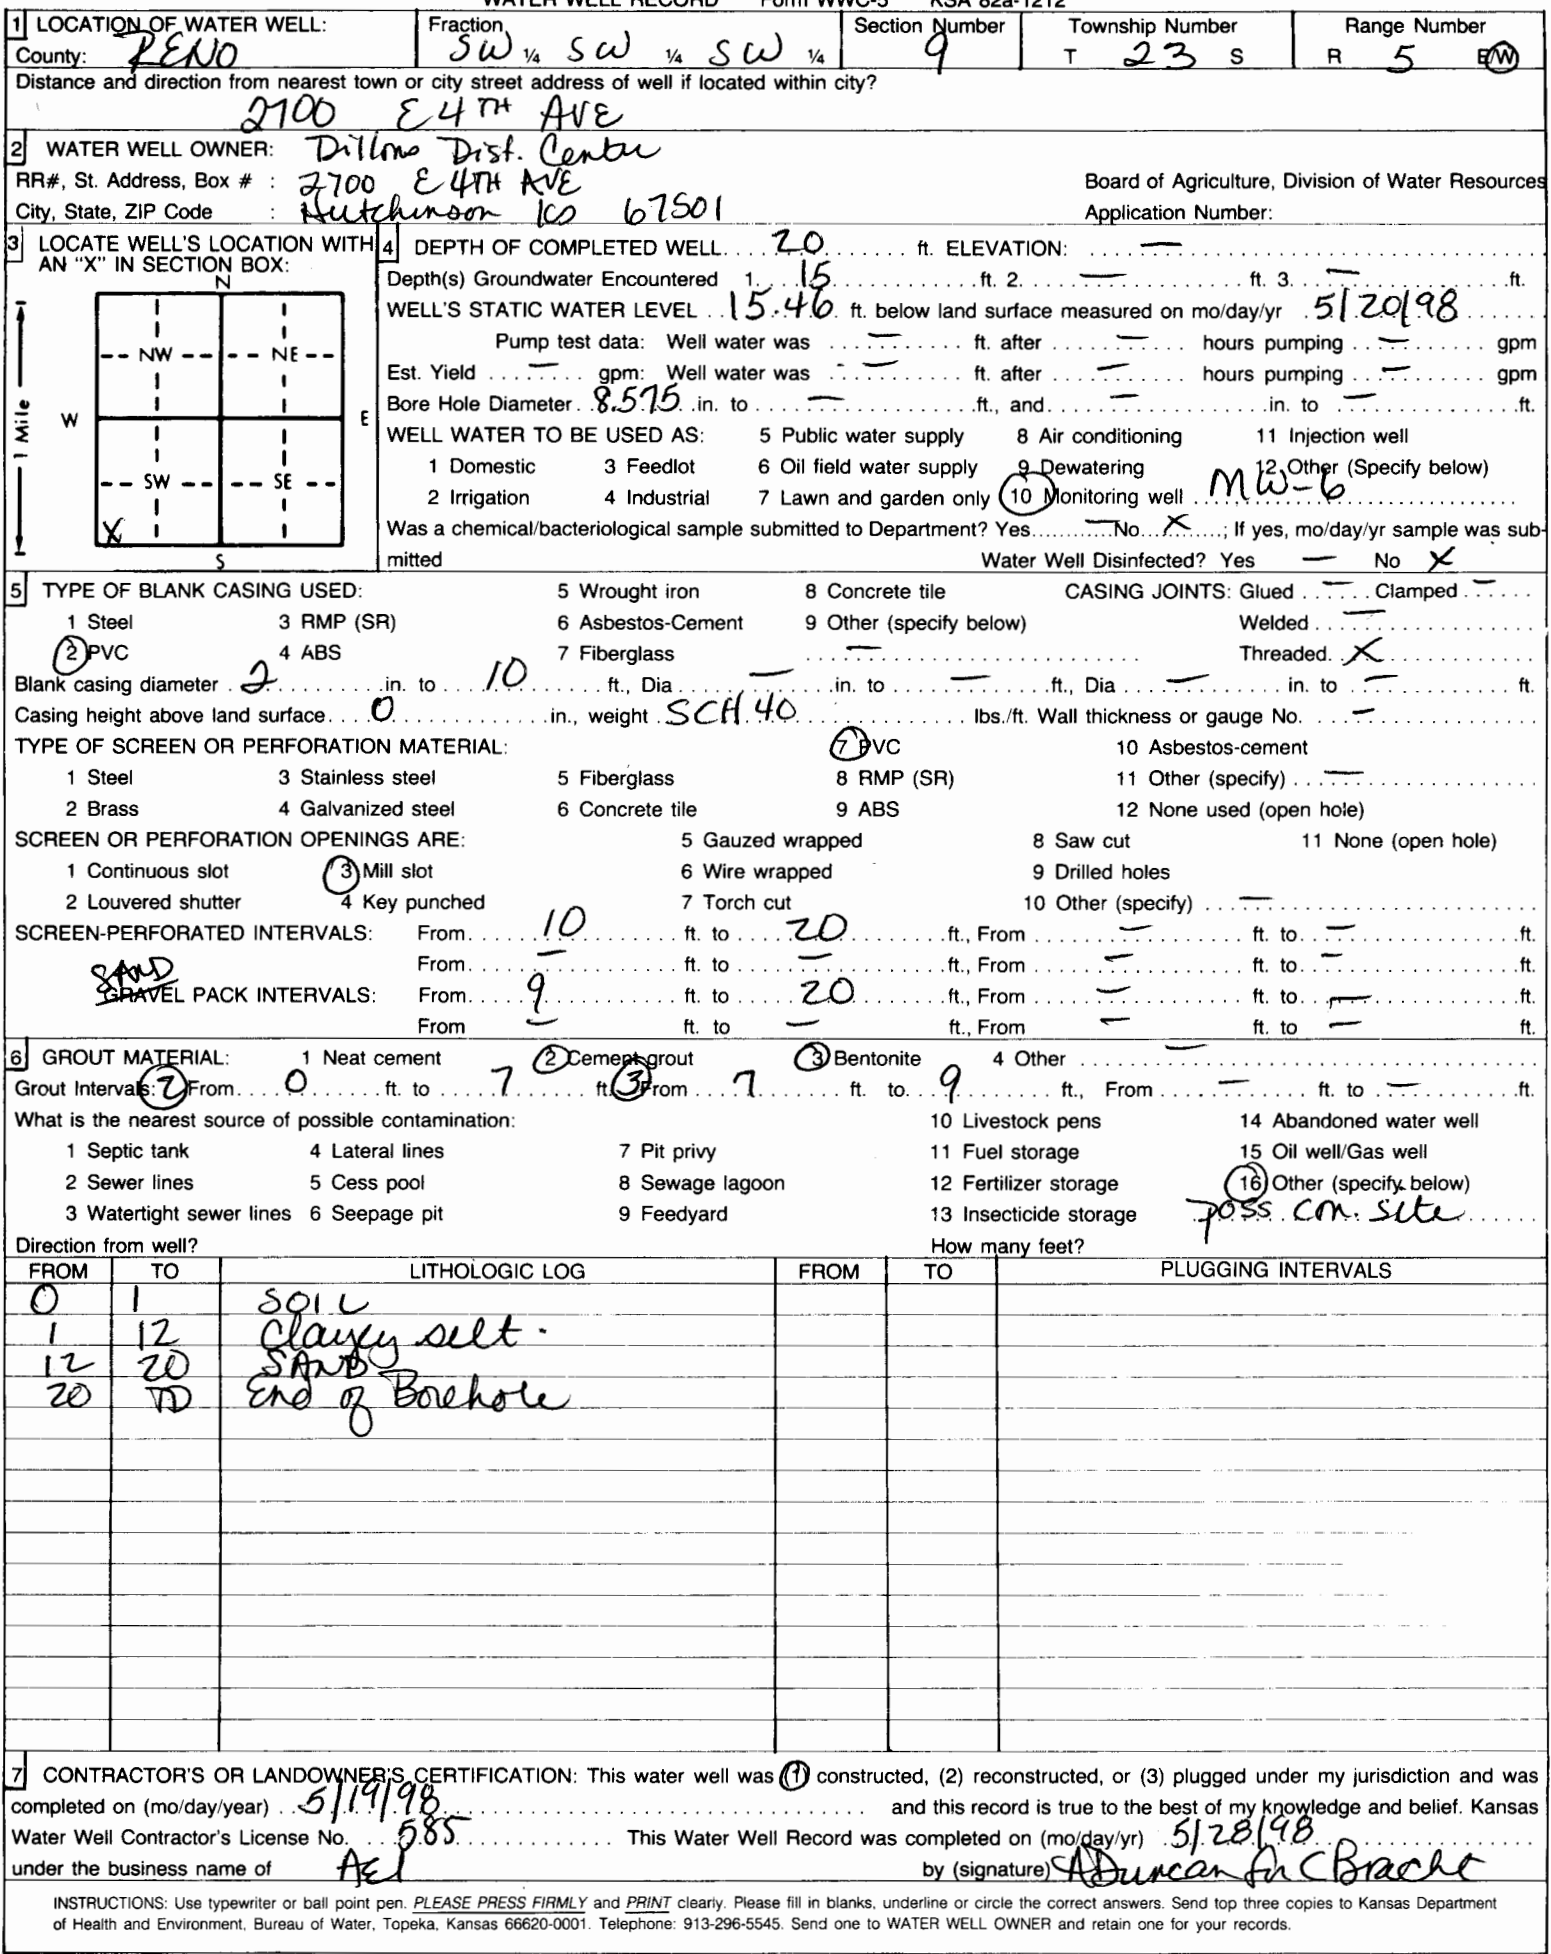 WATER WELL RECORD Form WWC-5 KSA 82a-1212
1 LOCATION OF WATER WELL: Fraction Section Number Township Number Range Number
County: RENO SW ¼ SW ¼ SW ¼ 9 T 23 S R 5 E/W
Distance and direction from nearest town or city street address of well if located within city?
2700 E 4TH AVE
2 WATER WELL OWNER: Dillons Dist. Center
RR#, St. Address, Box # : 2700 E 4TH AVE Board of Agriculture, Division of Water Resources
City, State, ZIP Code : Hutchinson KS 67501 Application Number:
3 LOCATE WELL'S LOCATION WITH AN "X" IN SECTION BOX:
N
NW NE
W E
1 Mile
SW SE
X
S
4 DEPTH OF COMPLETED WELL 20 ft. ELEVATION: —
Depth(s) Groundwater Encountered 1. 15 ft. 2. — ft. 3. — ft.
WELL'S STATIC WATER LEVEL 15.46 ft. below land surface measured on mo/day/yr 5/20/98
Pump test data: Well water was — ft. after — hours pumping — gpm
Est. Yield — gpm: Well water was — ft. after — hours pumping — gpm
Bore Hole Diameter 8.575 in. to — ft., and — in. to — ft.
WELL WATER TO BE USED AS: 5 Public water supply 8 Air conditioning 11 Injection well
1 Domestic 3 Feedlot 6 Oil field water supply 9 Dewatering 12 Other (Specify below)
2 Irrigation 4 Industrial 7 Lawn and garden only 10 Monitoring well MW-6
Was a chemical/bacteriological sample submitted to Department? Yes — No X; If yes, mo/day/yr sample was sub-
mitted Water Well Disinfected? Yes — No X
5 TYPE OF BLANK CASING USED: 5 Wrought iron 8 Concrete tile CASING JOINTS: Glued — Clamped —
1 Steel 3 RMP (SR) 6 Asbestos-Cement 9 Other (specify below) Welded —
2 PVC 4 ABS 7 Fiberglass — Threaded X
Blank casing diameter 2 in. to 10 ft., Dia — in. to — ft., Dia — in. to — ft.
Casing height above land surface 0 in., weight SCH 40 lbs./ft. Wall thickness or gauge No. —
TYPE OF SCREEN OR PERFORATION MATERIAL: 7 PVC 10 Asbestos-cement
1 Steel 3 Stainless steel 5 Fiberglass 8 RMP (SR) 11 Other (specify) —
2 Brass 4 Galvanized steel 6 Concrete tile 9 ABS 12 None used (open hole)
SCREEN OR PERFORATION OPENINGS ARE: 5 Gauzed wrapped 8 Saw cut 11 None (open hole)
1 Continuous slot 3 Mill slot 6 Wire wrapped 9 Drilled holes
2 Louvered shutter 4 Key punched 7 Torch cut 10 Other (specify) —
SCREEN-PERFORATED INTERVALS: From 10 ft. to 20 ft., From — ft. to — ft.
From — ft. to — ft., From — ft. to — ft.
SAND
GRAVEL PACK INTERVALS: From 9 ft. to 20 ft., From — ft. to — ft.
From — ft. to — ft., From — ft. to — ft.
6 GROUT MATERIAL: 1 Neat cement 2 Cement grout 3 Bentonite 4 Other —
Grout Intervals: 2 From 0 ft. to 7 ft. 3 From 7 ft. to 9 ft., From — ft. to — ft.
What is the nearest source of possible contamination: 10 Livestock pens 14 Abandoned water well
1 Septic tank 4 Lateral lines 7 Pit privy 11 Fuel storage 15 Oil well/Gas well
2 Sewer lines 5 Cess pool 8 Sewage lagoon 12 Fertilizer storage 16 Other (specify below)
3 Watertight sewer lines 6 Seepage pit 9 Feedyard 13 Insecticide storage poss. con. site
Direction from well? How many feet?
FROM TO LITHOLOGIC LOG FROM TO PLUGGING INTERVALS
0 1 SOIL
1 12 Clayey silt
12 20 SAND
20 TD End of Borehole
7 CONTRACTOR'S OR LANDOWNER'S CERTIFICATION: This water well was (1) constructed, (2) reconstructed, or (3) plugged under my jurisdiction and was
completed on (mo/day/year) 5/19/98 and this record is true to the best of my knowledge and belief. Kansas
Water Well Contractor's License No. 585 This Water Well Record was completed on (mo/day/yr) 5/28/98
under the business name of AEI by (signature) A Duncan for C Bracht
INSTRUCTIONS: Use typewriter or ball point pen. PLEASE PRESS FIRMLY and PRINT clearly. Please fill in blanks, underline or circle the correct answers. Send top three copies to Kansas Department
of Health and Environment, Bureau of Water, Topeka, Kansas 66620-0001. Telephone: 913-296-5545. Send one to WATER WELL OWNER and retain one for your records.